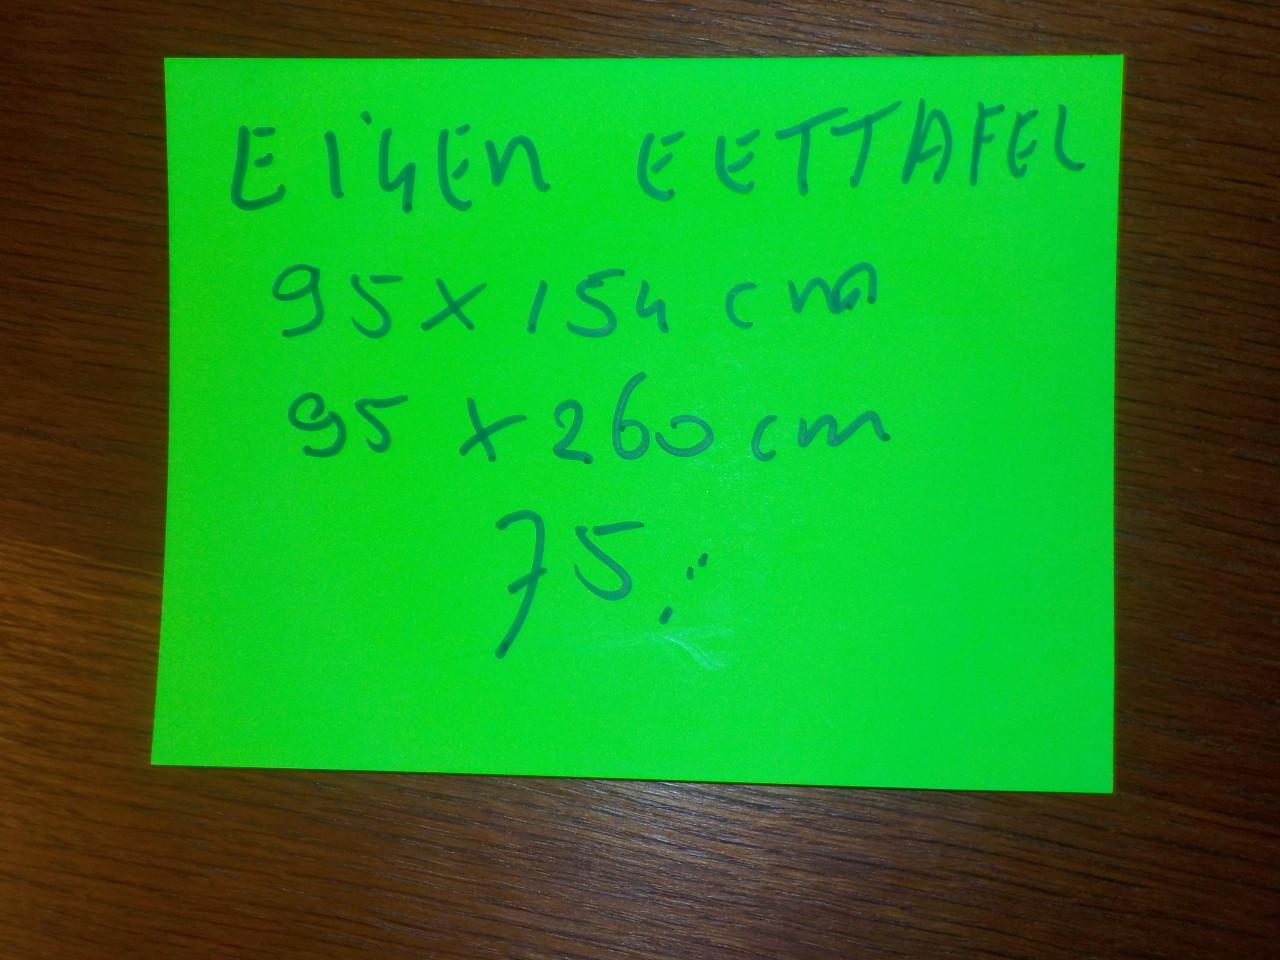 EIGEN EETTAFEL
95 X 154 cm
95 X 260 cm
75,-